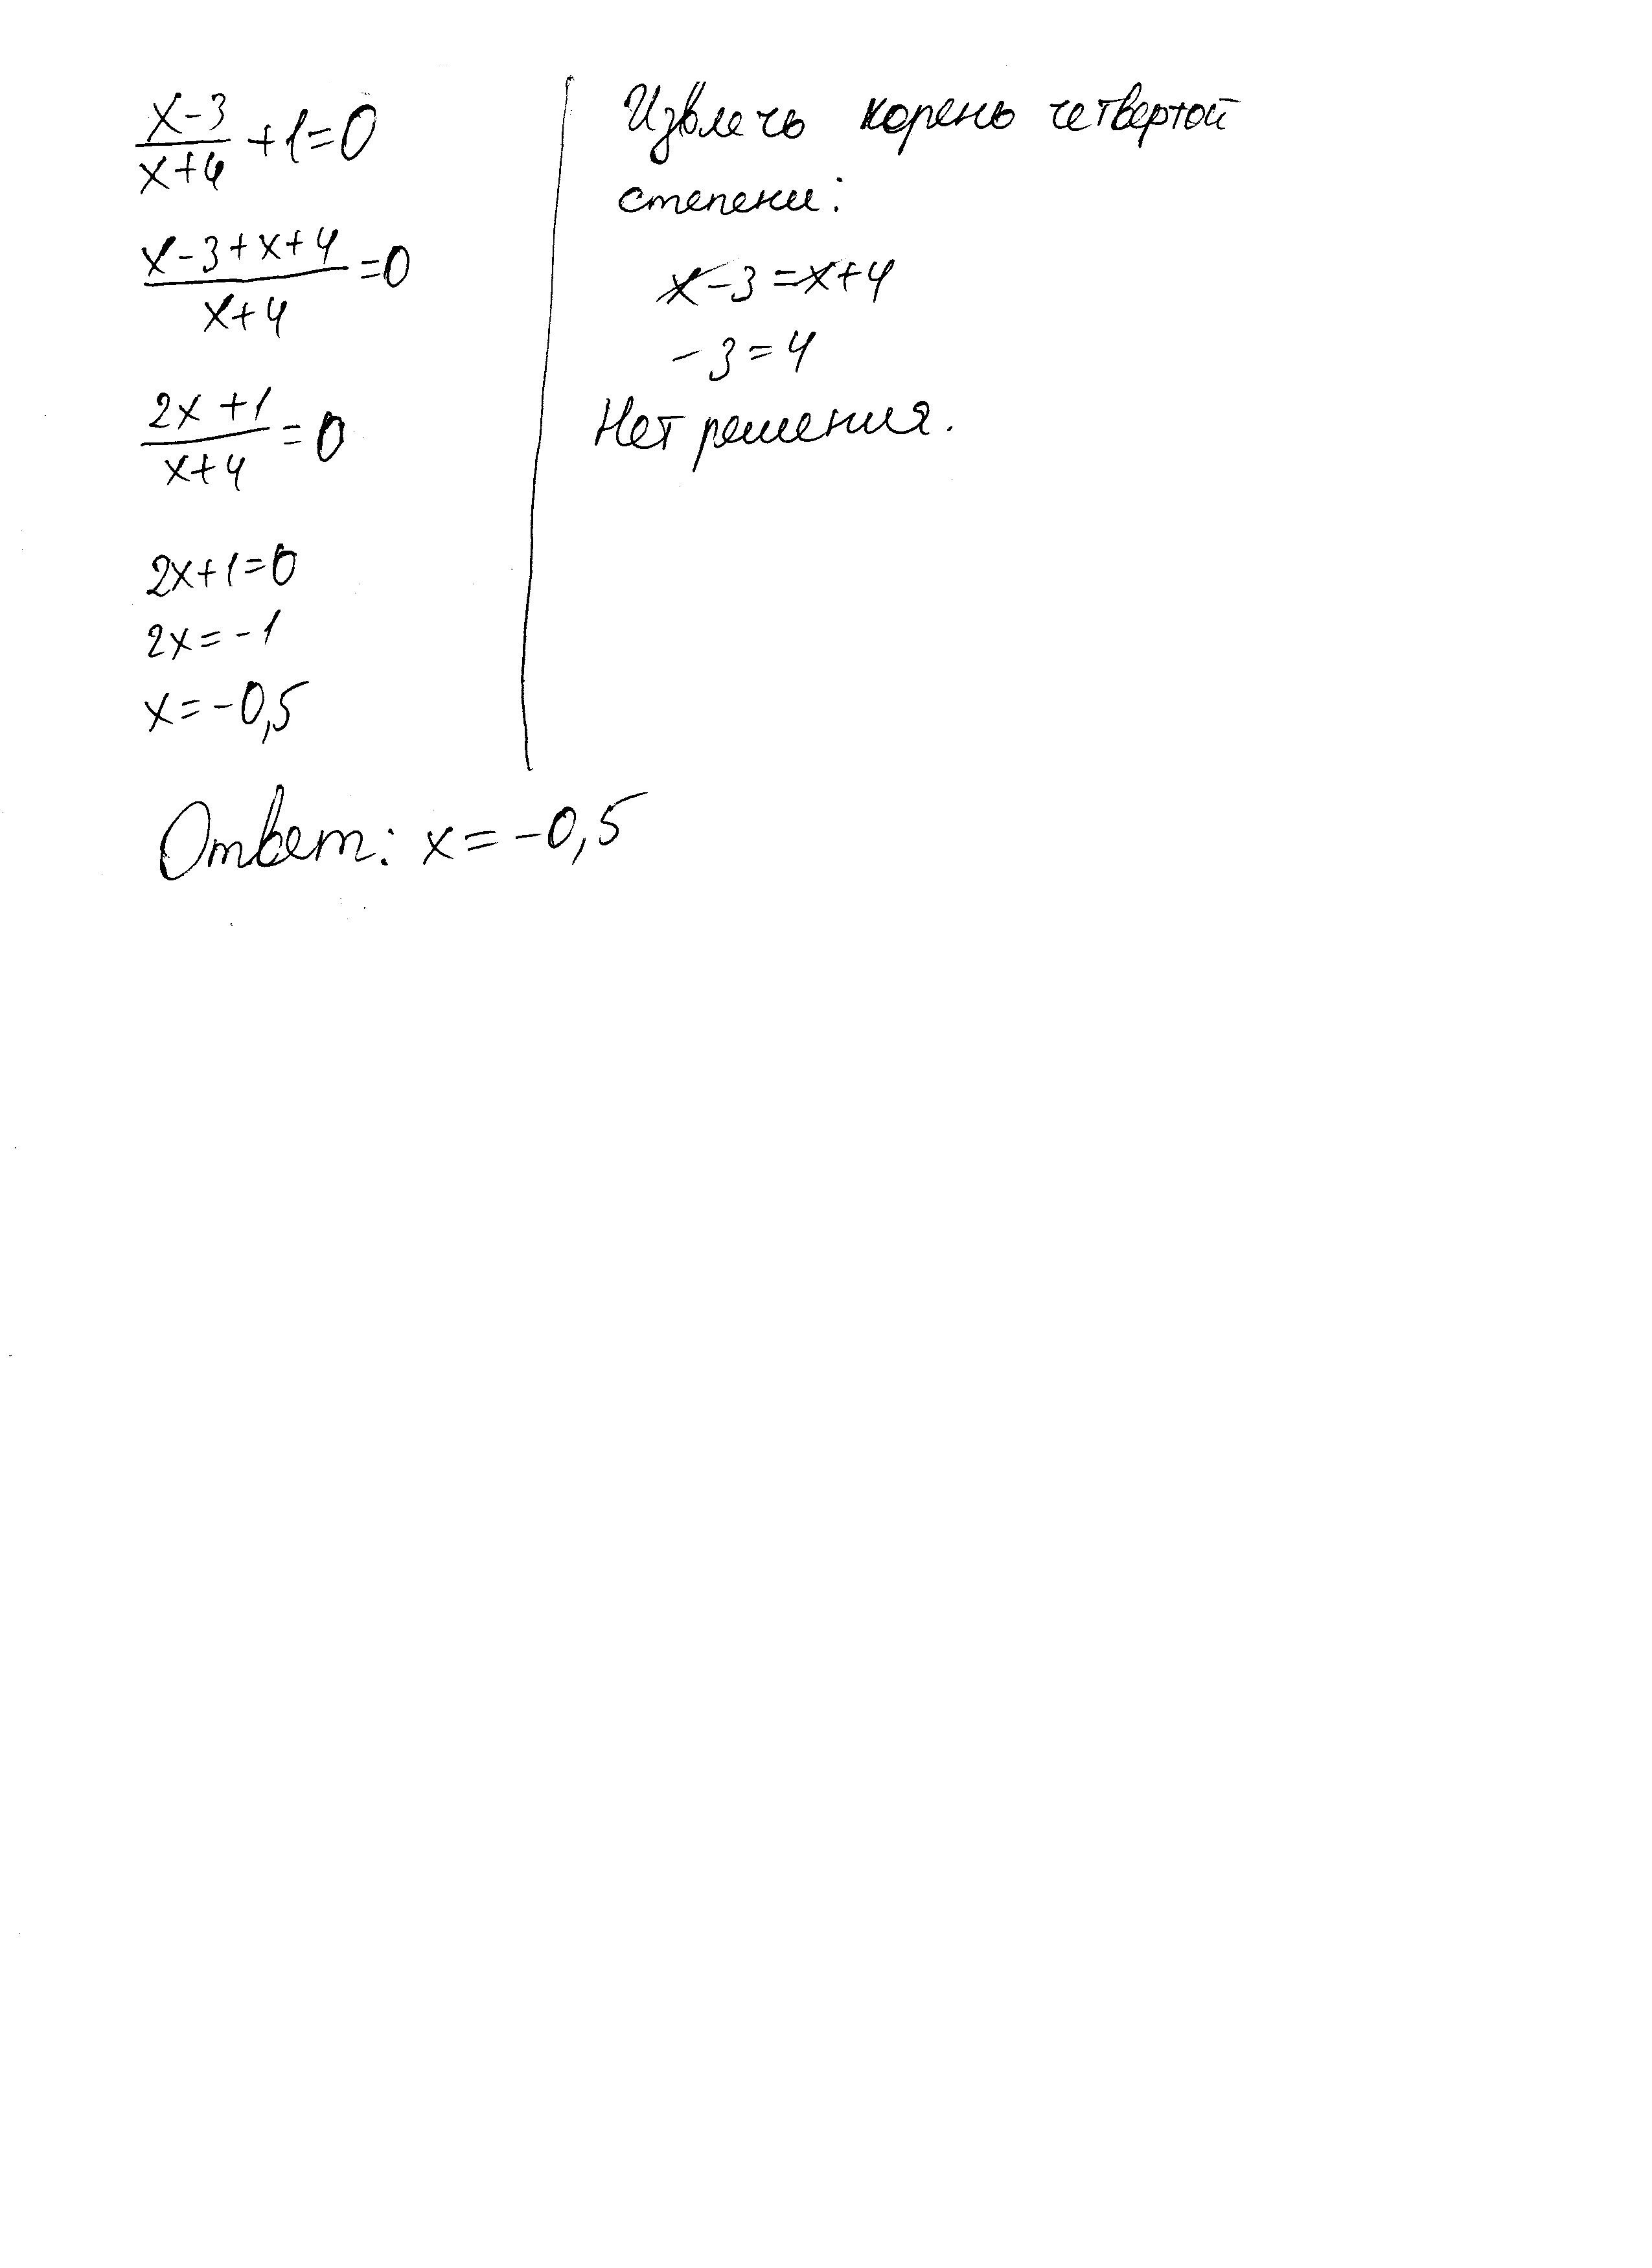 x-3
x+4
+1=0
x-3+x+4
x+4
=0
2x+1
x+4
=0
2x+1=0
2x=-1
x=-0,5
Извлечь корень четвертой
степени:
x-3=x+4
-3=4
Нет решения.
Ответ: x=-0,5